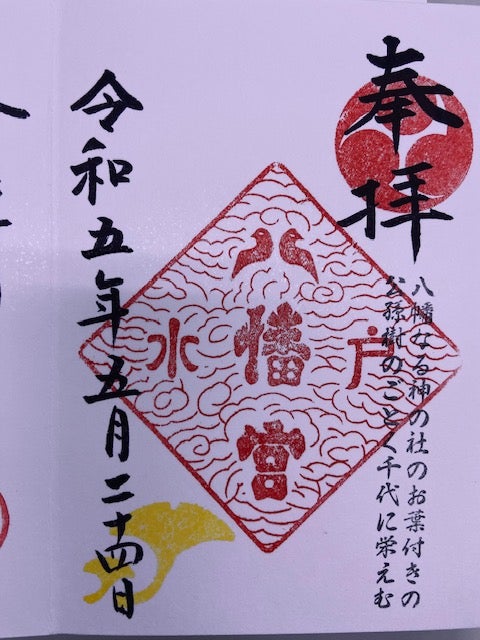 奉拝
八幡なる神の社のお葉付きの
公孫樹のごとく千代に栄えむ
水戸
八幡宮
令和五年五月二十四日